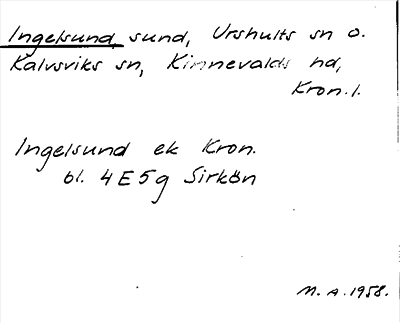 Ingelsund, sund, Urshults sn o.
Kalvsviks sn, Kinnevalds hd,
Kron.l.
Ingelsund ek Kron.
bl. 4E5g Sirkön
M.A.1958.